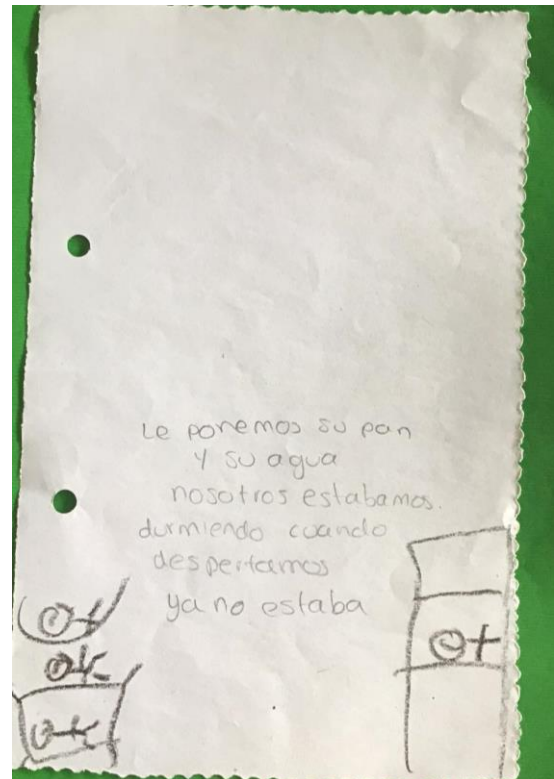 Le ponemos su pan
y su agua
nosotros estabamos.
durmiendo cuando
despertamos
ya no estaba